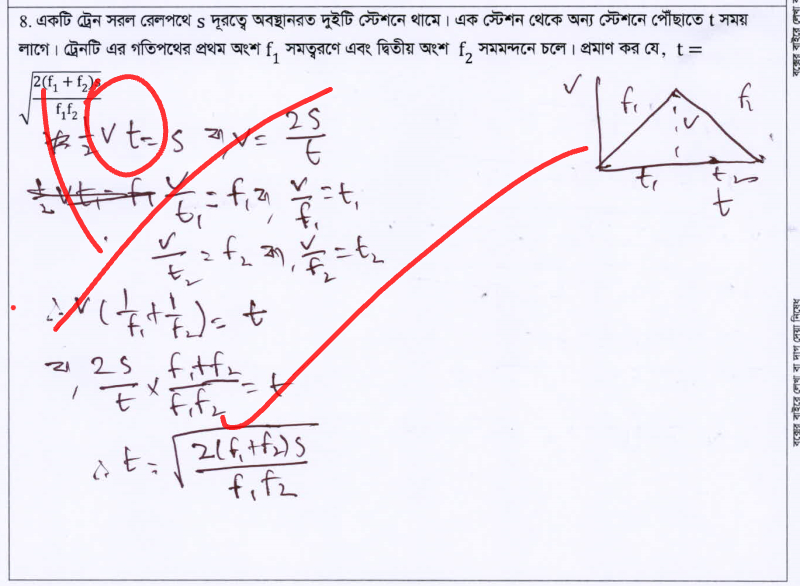 8. একটি ট্রেন সরল রেলপথে s দূরত্বে অবস্থানরত দুইটি স্টেশনে থামে। এক স্টেশন থেকে অন্য স্টেশনে পৌঁছাতে t সময়
লাগে। ট্রেনটি এর গতিপথের প্রথম অংশ f₁ সমত্বরণে এবং দ্বিতীয় অংশ f₂ সমমন্দনে চলে। প্রমাণ কর যে, t =
√(2(f₁ + f₂)s / f₁f₂)
½ v t = s বা, v = 2s/t
v/t₁ = f₁ বা, v/f₁ = t₁
v/t₂ = f₂ বা, v/f₂ = t₂
∴ v (1/f₁ + 1/f₂) = t
বা, 2s/t × (f₁+f₂)/(f₁f₂) = t
∴ t = √(2(f₁+f₂)s / f₁f₂)
v
f₁
v
f₂
t₁
t₂
t